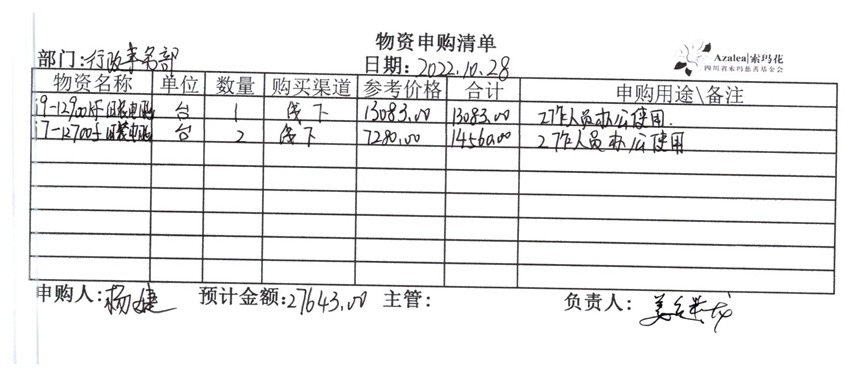 物资申购清单
Azalea|索玛花
四川省索玛慈善基金会
部门:行政事务部 日期:2022.10.28
物资名称 单位 数量 购买渠道 参考价格 合计 申购用途\备注
i9-12900 台 1 线下 13083.00 13083.00 工作人员办公使用.
i7-12700 台 2 线下 7280.00 14560.00 工作人员办公使用
申购人:杨婕 预计金额:27643.00 主管: 负责人: